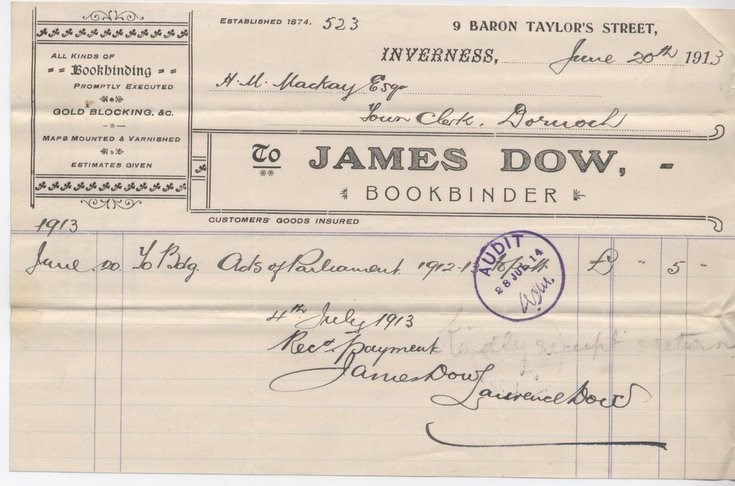 ESTABLISHED 1874. 523
9 BARON TAYLOR'S STREET,
INVERNESS, June 20th 1913
ALL KINDS OF
Bookbinding
PROMPTLY EXECUTED
GOLD BLOCKING, &C.
MAPS MOUNTED & VARNISHED
ESTIMATES GIVEN
H. M. Mackay Esqr
Town Clerk, Dornoch
To JAMES DOW,
BOOKBINDER
CUSTOMERS' GOODS INSURED
1913
June 20 To Bdg. Acts of Parliament 1912-13 £ - 5 -
AUDIT
28 JUL 14
4th July 1913
Recd payment
James Dow
Laurence Dow
Kindly receipt & return